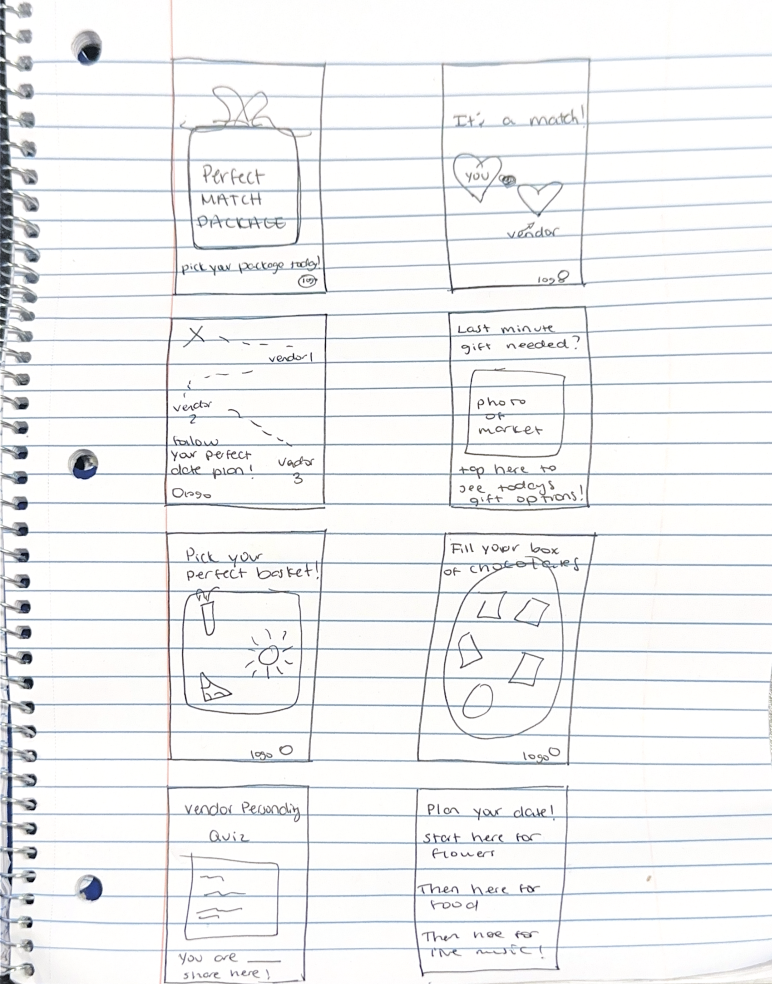 Perfect
MATCH
PACKAGE
pick your package today!
logo
It's a match!
YOU
vendor
logo
X
vendor 1
vendor
2
follow
your perfect
date plan!
vendor
3
logo
Last minute
gift needed?
photo
of
market
tap here to
see todays
gift options!
Pick your
perfect basket!
logo
Fill your box
of chocolates
logo
vendor
Quiz
You are ____
share here!
Plan your date!
start here for
flowers
Then here for
food
Then here for
live music!